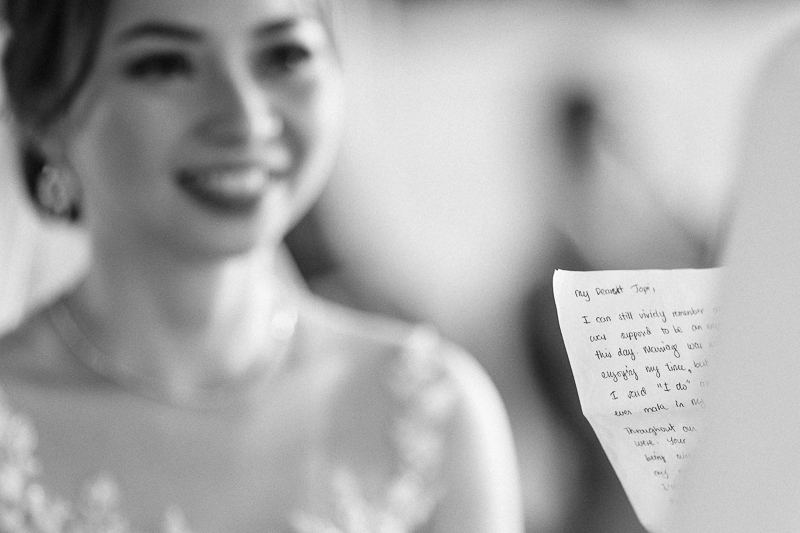 My Dearest
I can still vividly remember
was suppose to be an
this day. Marriage was
enjoying my time, but
I said "I do"
ever make in my
Throughout our
were. Your
being
my